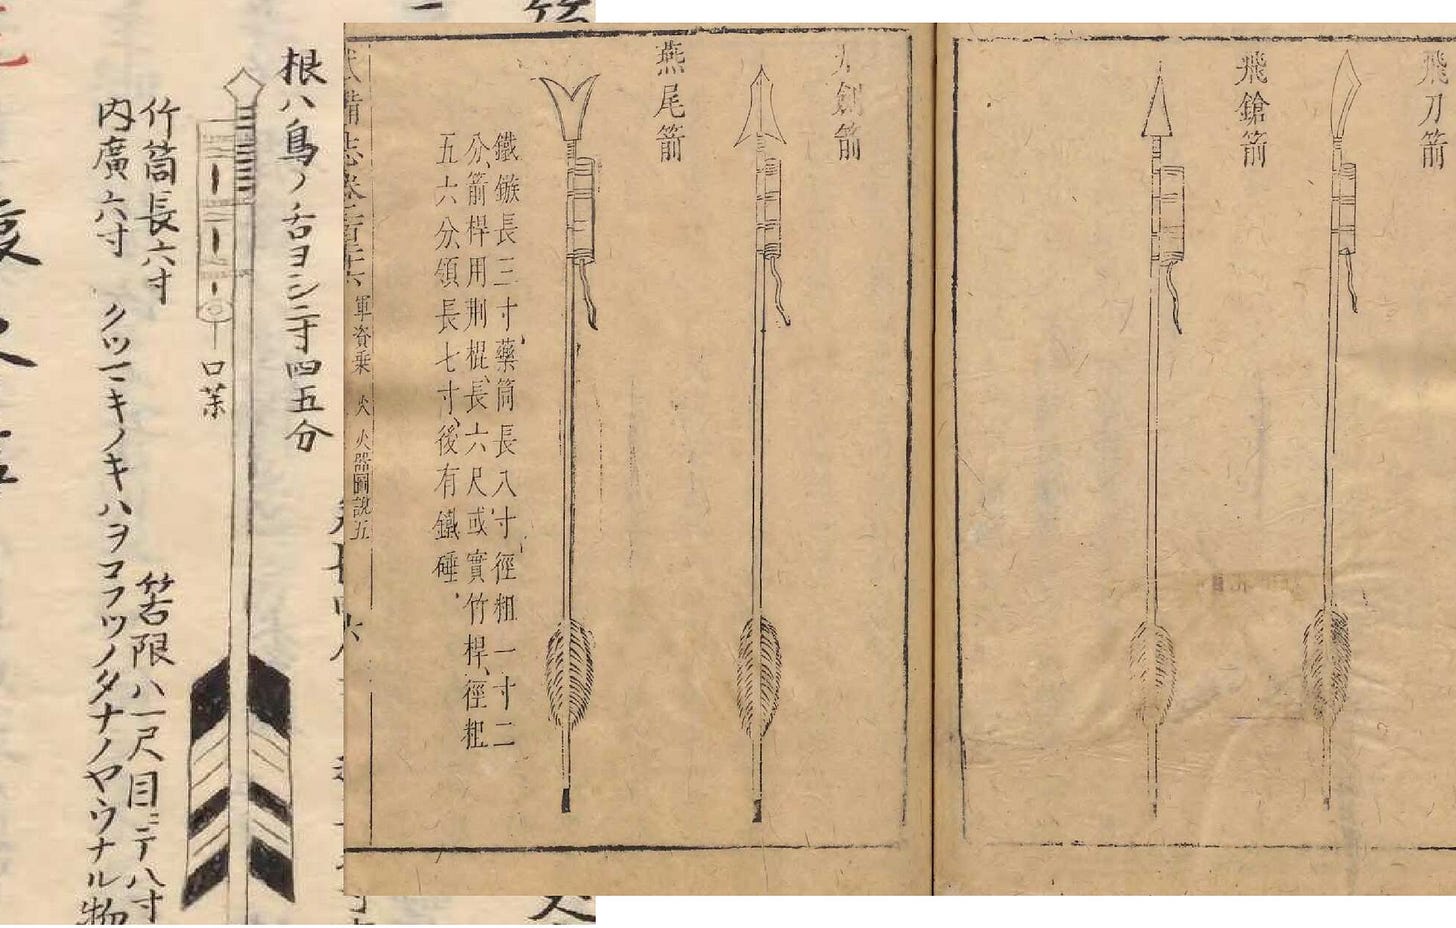 飛刀箭
飛鎗箭
劍箭
燕尾箭
鐵鏃長三寸藥筒長八寸徑粗一寸二
分、箭桿用荆棍、長六尺、或實竹桿、徑粗
五六分、領長七寸、後有鐵硾、
武備志卷 軍資乗 火 火器圖說五
根ハ鳥ノ舌ヨシ二寸四五分
口
竹筒長六寸
内廣六寸
筈限ハ一尺目ニテ八寸
クツ一キノキハヲコフツノタナノヤウナル物